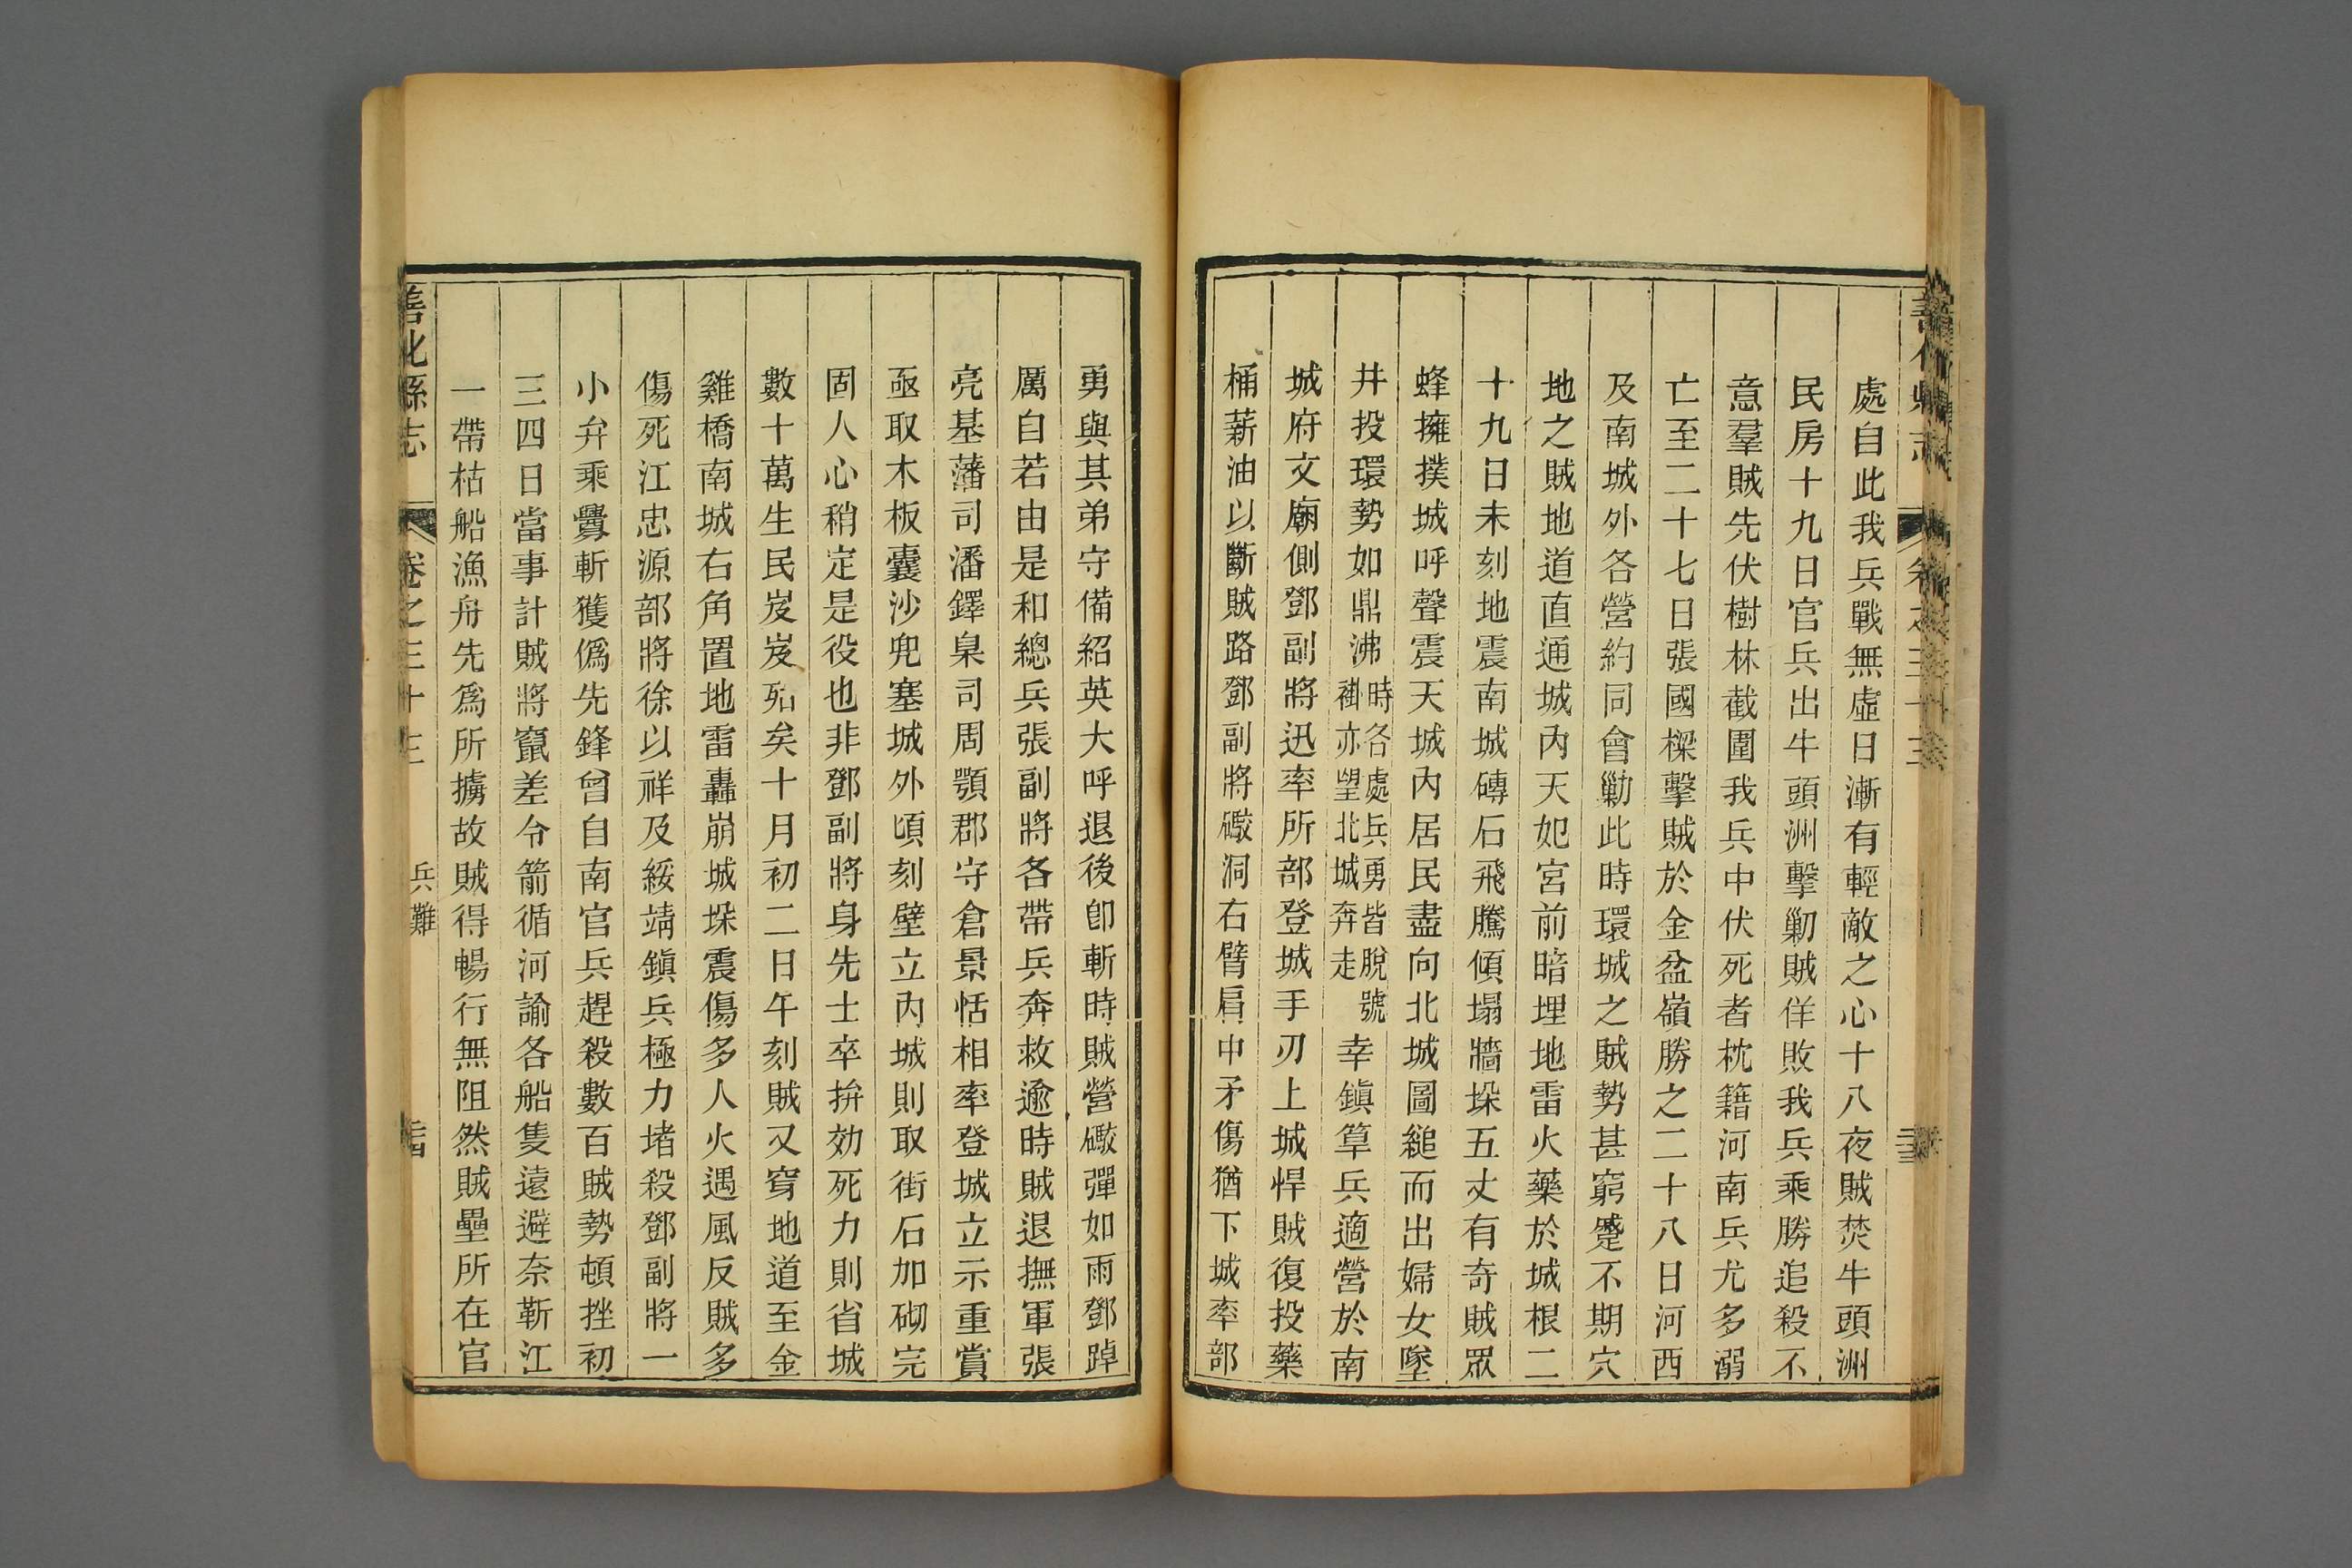 處自此我兵戰無虛日漸有輕敵之心十八夜賊焚牛頭洲
民房十九日官兵出牛頭洲擊剿賊佯敗我兵乘勝追殺不
意羣賊先伏樹林截圍我兵中伏死者枕籍河南兵尤多溺
亡至二十七日張國樑擊賊於金盆嶺勝之二十八日河西
及南城外各營約同會剿此時環城之賊勢甚窮蹙不期穴
地之賊地道直通城內天妃宮前暗埋地雷火藥於城根二
十九日未刻地震南城磚石飛騰傾塌牆垛五丈有奇賊眾
蜂擁撲城呼聲震天城內居民盡向北城圖縋而出婦女墜
井投環勢如鼎沸時各處兵勇皆脫號褂亦望北城奔走幸鎭筸兵適營於南
城府文廟側鄧副將迅率所部登城手刃上城悍賊復投藥
桶薪油以斷賊路鄧副將礮洞右臂肩中矛傷猶下城率部
勇與其弟守備紹英大呼退後卽斬時賊營礮彈如雨鄧踔
厲自若由是和總兵張副將各帶兵奔救逾時賊退撫軍張
亮基藩司潘鐸臬司周顎郡守倉景恬相率登城立示重賞
亟取木板囊沙兜塞城外頃刻壁立內城則取街石加砌完
固人心稍定是役也非鄧副將身先士卒拚効死力則省城
數十萬生民岌岌殆矣十月初二日午刻賊又穿地道至金
雞橋南城右角置地雷轟崩城垛震傷多人火遇風反賊多
傷死江忠源部將徐以祥及綏靖鎭兵極力堵殺鄧副將一
小弁乘釁斬獲僞先鋒曾自南官兵趕殺數百賊勢頓挫初
三四日當事計賊將竄差令箭循河諭各船隻遠避奈靳江
一帶枯船漁舟先爲所擄故賊得暢行無阻然賊壘所在官
善化縣志
卷之三十三
兵難